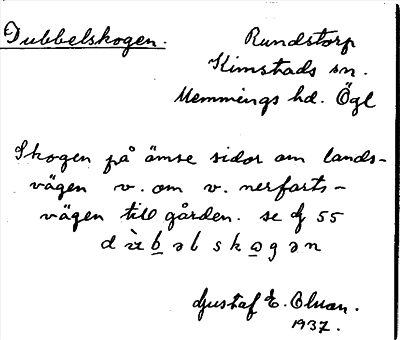 Dubbelskogen.
Rundstorp
Kimstads sn.
Memmings hd. Ögl
Skogen på ömse sidor om lands-
vägen v. om v. nerfarts-
vägen till gården. se 55
Gustaf E. Oluan.
1937.